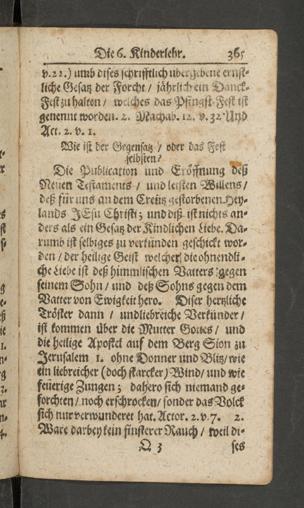 Die 6. Kinderlehr. 365
v. 22.) umb dises schrifftlich ubergebene ernst-
liche Gesatz der Forcht / jährlich ein Danck-
Fest zu halten / welches das Pfingst-Fest ist
genennt worden. 2. Machab. 12. v. 32 Und
Act. 2. v. 1.
Wie ist der Gegensatz / oder das Fest
selbsten?
Die Publication und Eröffnung deß
Neuen Testaments / und letsten Willens /
deß für uns an dem Creütz gestorbenen Hey-
lands JEsu Christi; und diß ist nichts an-
ders als ein Gesatz der Kindlichen Liebe. Da-
rumb ist selbiges zu verkünden geschickt wor-
den / der heilige Geist welcher die ohnendli-
che Liebe ist deß himmlischen Vatters gegen
seinem Sohn / und deß Sohns gegen dem
Vatter von Ewigkeit hero. Diser hertzliche
Tröster dann / und liebreiche Verkünder /
ist kommen über die Mutter Gottes / und
die heilige Apostel auf dem Berg Sion zu
Jerusalem 1. ohne Donner und Blitz / wie
ein liebreicher (doch starcker) Wind / und wie
feüerige Zungen; dahero sich niemand ge-
forchten / noch erschrocken / sonder das Volck
sich nur verwunderet hat. Actor. 2. v. 7. 2.
Ware darbey kein finsterer Rauch / weil di-
Q 3 ses